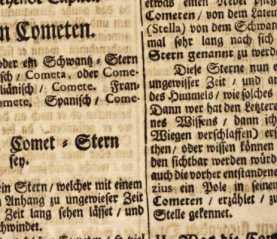 n Cometen.
oder ein Schwantz-Stern
sch / Cometa, oder Come-
liänisch / Comete. Fran-
omete, Spanisch / Come-
Comet-Stern
sey.
ein Stern / welcher mit einem
Anhang zu ungewieser Zeit
Zeit lang sehen lässet / und
chwindet.
etwas einen
Cometen / von dem Latei
(Stella) von dem Schwan
mal sehr lang nach sich
Stern genannt zu werd
Diese Sterne nun e
ungewisser Zeit / und an
des Himmels / wie solches d
Dann wer hat den Letztern
nes Wissens / dann ich
Wiegen verschlaffen) en
then / oder wissen können
den sichtbar werden würd
auch die vorher entstandene
zius ein Pole in seinem
Cometen / erzählet / zu
Stelle gekennet.